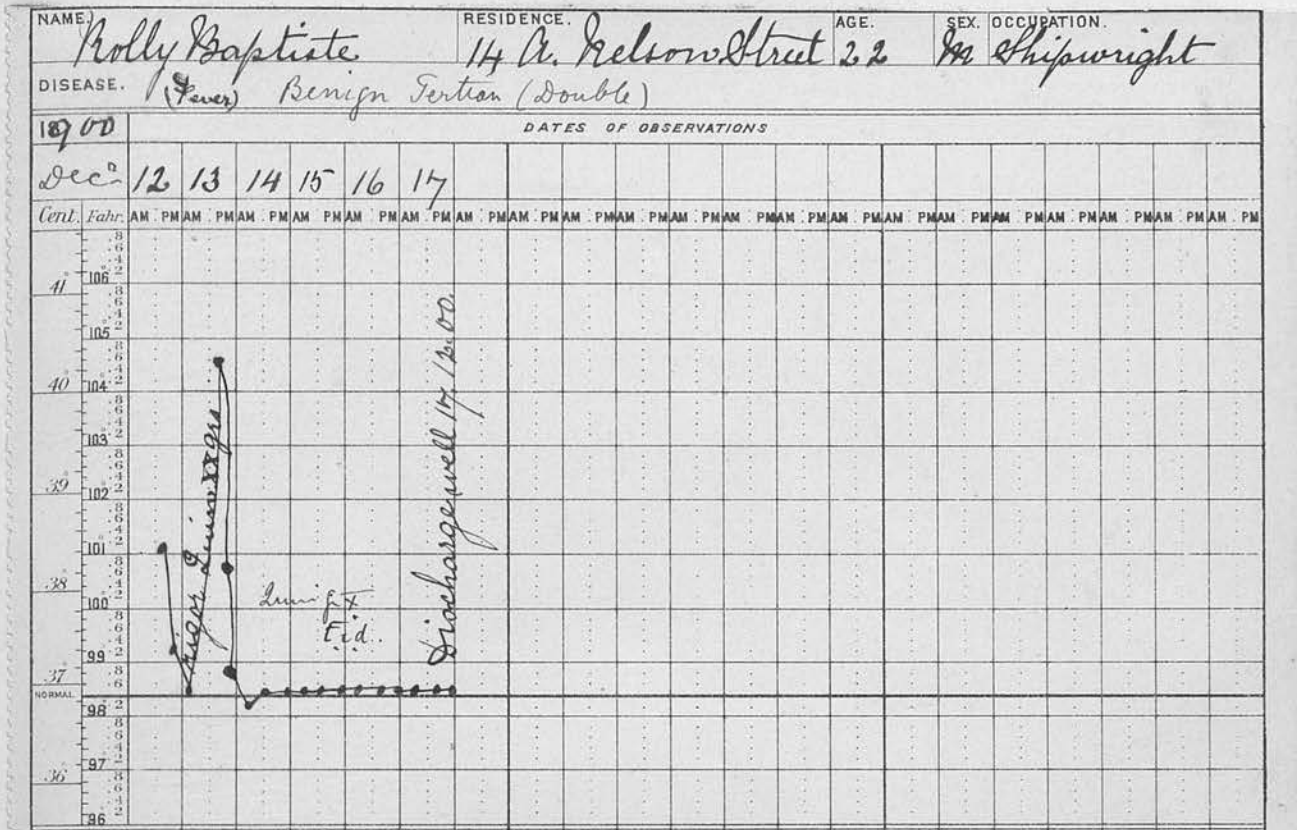 NAME. RESIDENCE. AGE. SEX. OCCUPATION.
Rolly Baptiste 14 A. Nelson Street 22 M Shipwright
DISEASE. (Fever) Benign Tertian (Double)
1900 DATES OF OBSERVATIONS
Decr 12 13 14 15 16 17
Cent. Fahr. AM PM AM PM AM PM AM PM AM PM AM PM AM PM AM PM AM PM AM PM AM PM AM PM AM PM AM PM AM PM AM PM AM PM AM PM AM PM AM PM AM PM
106°
41°
105°
40° 104°
103°
39° 102°
101°
38° 100°
99°
37°
NORMAL
98°
97°
36°
96
Rigor Quin XX grs
Quin gr X
t.i.d.
Discharge well 17.12.00.